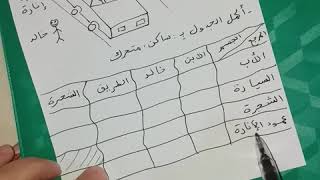 إنارة
خالد
- أكمل الجدول بـ: ساكن، متحرك
الجسم
المرجع
الابن
خالد
الطريق
الشعرة
الأب
السيارة
الشعرة
عمود الإنارة